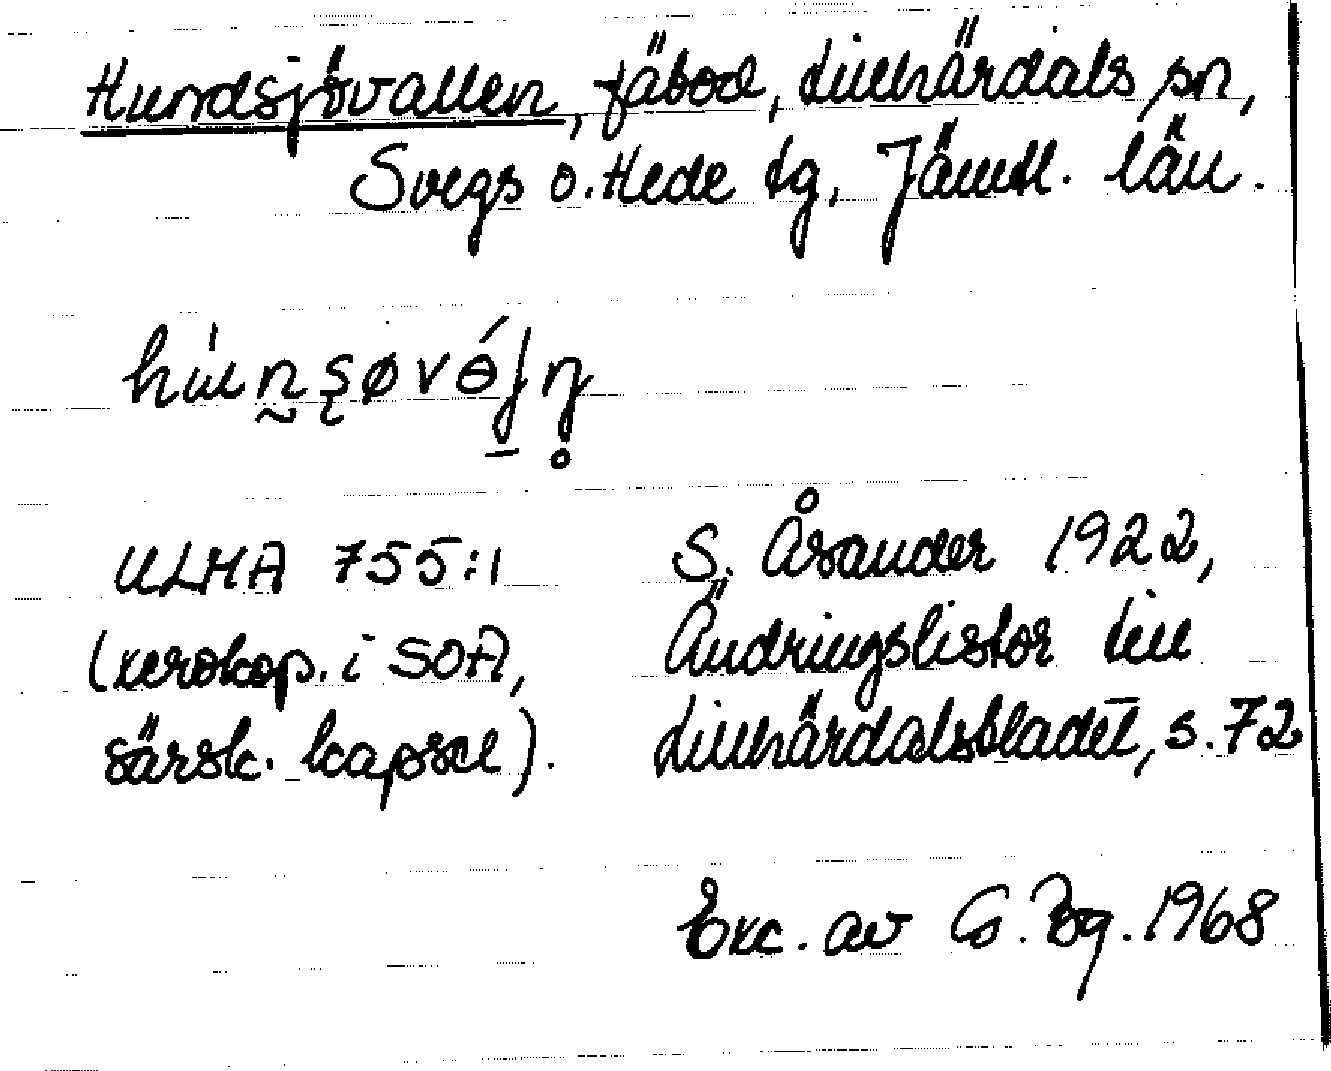 Hundsjövallen, fäbod, Lillhärdals sn,
Svegs o. Hede tg, Jämtl. län.
ULMA 755:1
S. Åsander 1922,
(xerokop. i SOA,
Ändringslistor till
särsk. kapsel).
Lillhärdalsbladet, s. 72
Exc. av G. Bg. 1968